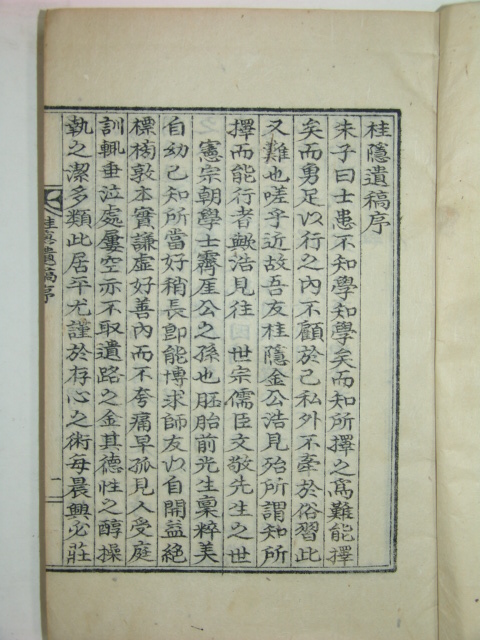 桂隱遺稿序
朱子曰士患不知學知學矣而知所擇之爲難能擇
矣而勇足以行之內不顧於己私外不牽於俗習此
又難也嗟乎近故吾友桂隱金公浩見殆所謂知所
擇而能行者歟浩見往 世宗儒臣文敬先生之世
憲宗朝學士霽厓公之孫也胚胎前光生禀粹美
自幼已知所當好稍長卽能博求師友以自開益絶
標榜敦本實謙虛好善內而不夸痛早孤見人受庭
訓輒垂泣處屢空亦不取遺路之金其德性之醇操
執之潔多類此居平尤謹於存心之術每晨興必莊
桂隱遺稿序